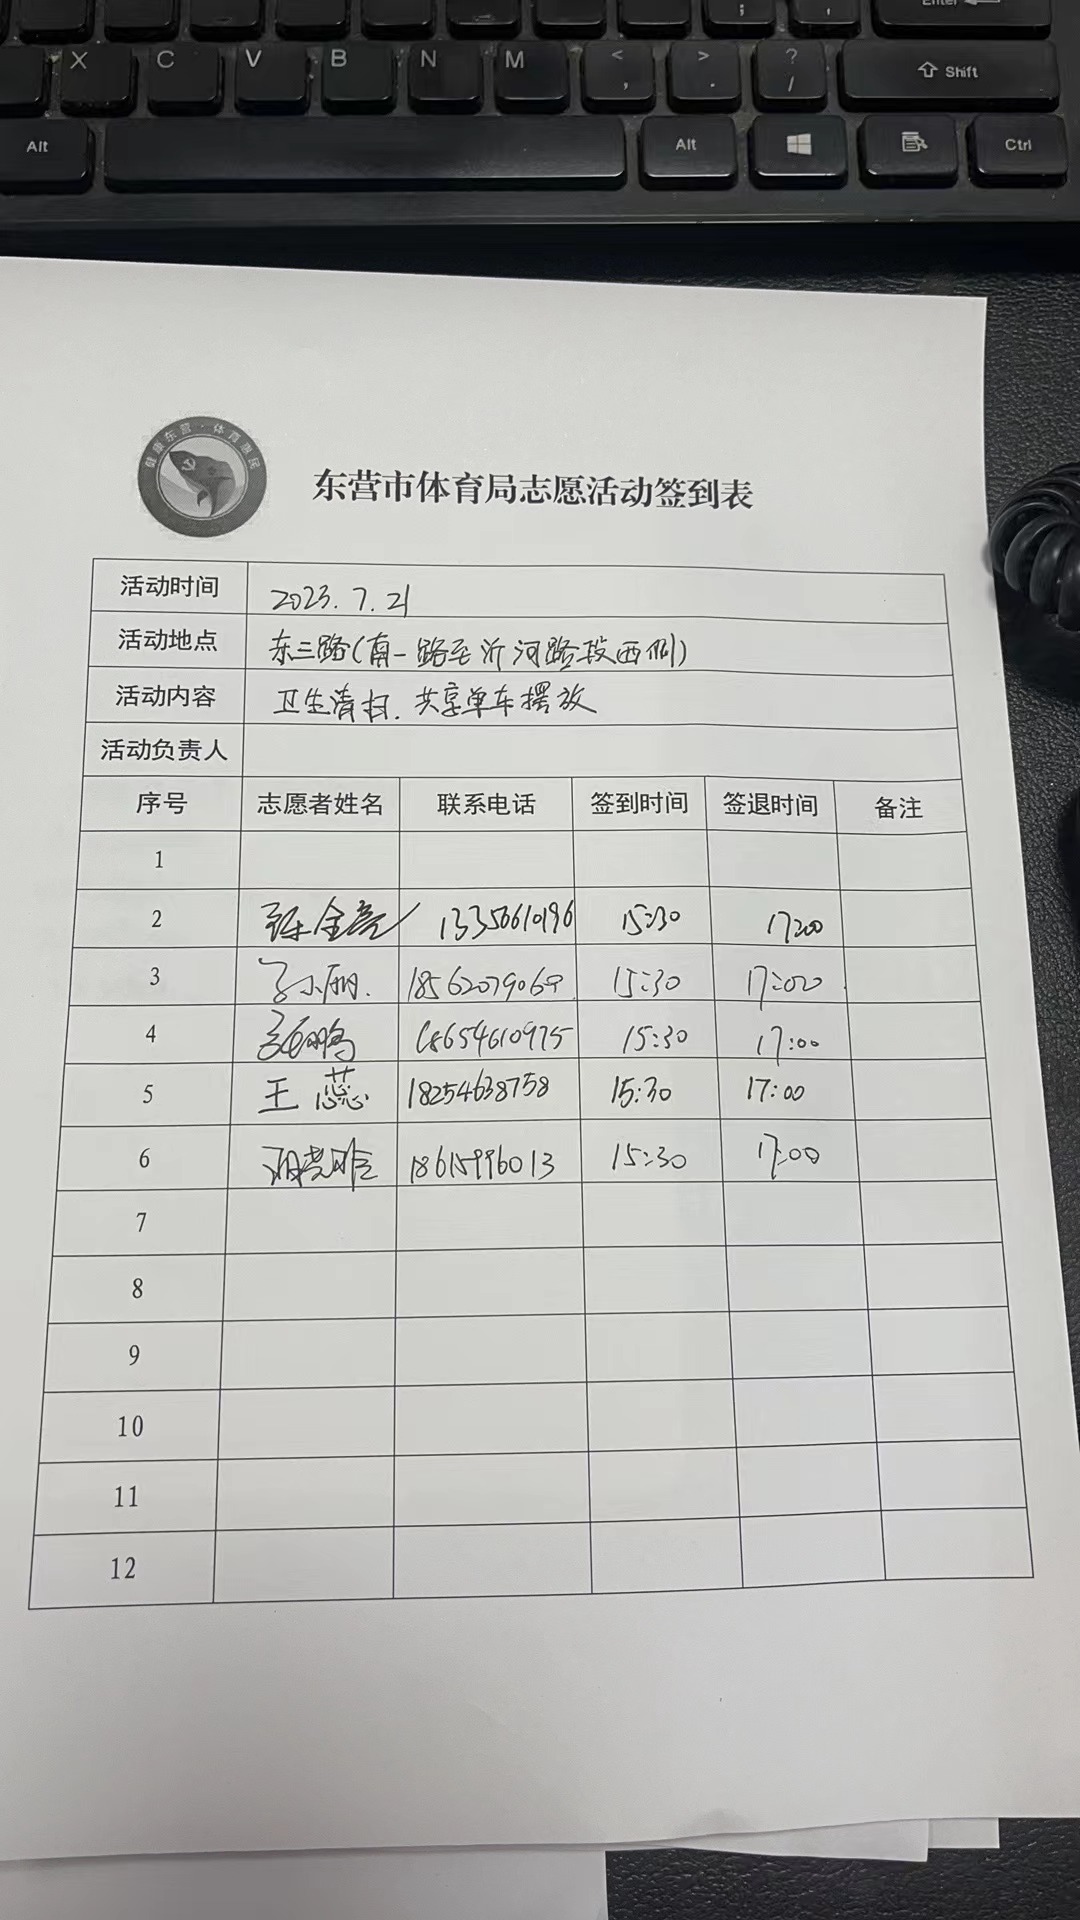 Enter
X C V B N M < , > . ? / Shift
Alt Alt Ctrl
健康东营·体育惠民
东营市体育局志愿活动签到表
活动时间 2023.7.21
活动地点 东三路(南一路至沂河路段西侧)
活动内容 卫生清扫.共享单车摆放
活动负责人
序号 志愿者姓名 联系电话 签到时间 签退时间 备注
1
2 13356610196 15:30 17:00
3 小丽. 1856207906 15:30 17:00
4 鹏 18654610975 15:30 17:00
5 王蕊 18254638758 15:30 17:00
6 18615996013 15:30 17:00
7
8
9
10
11
12